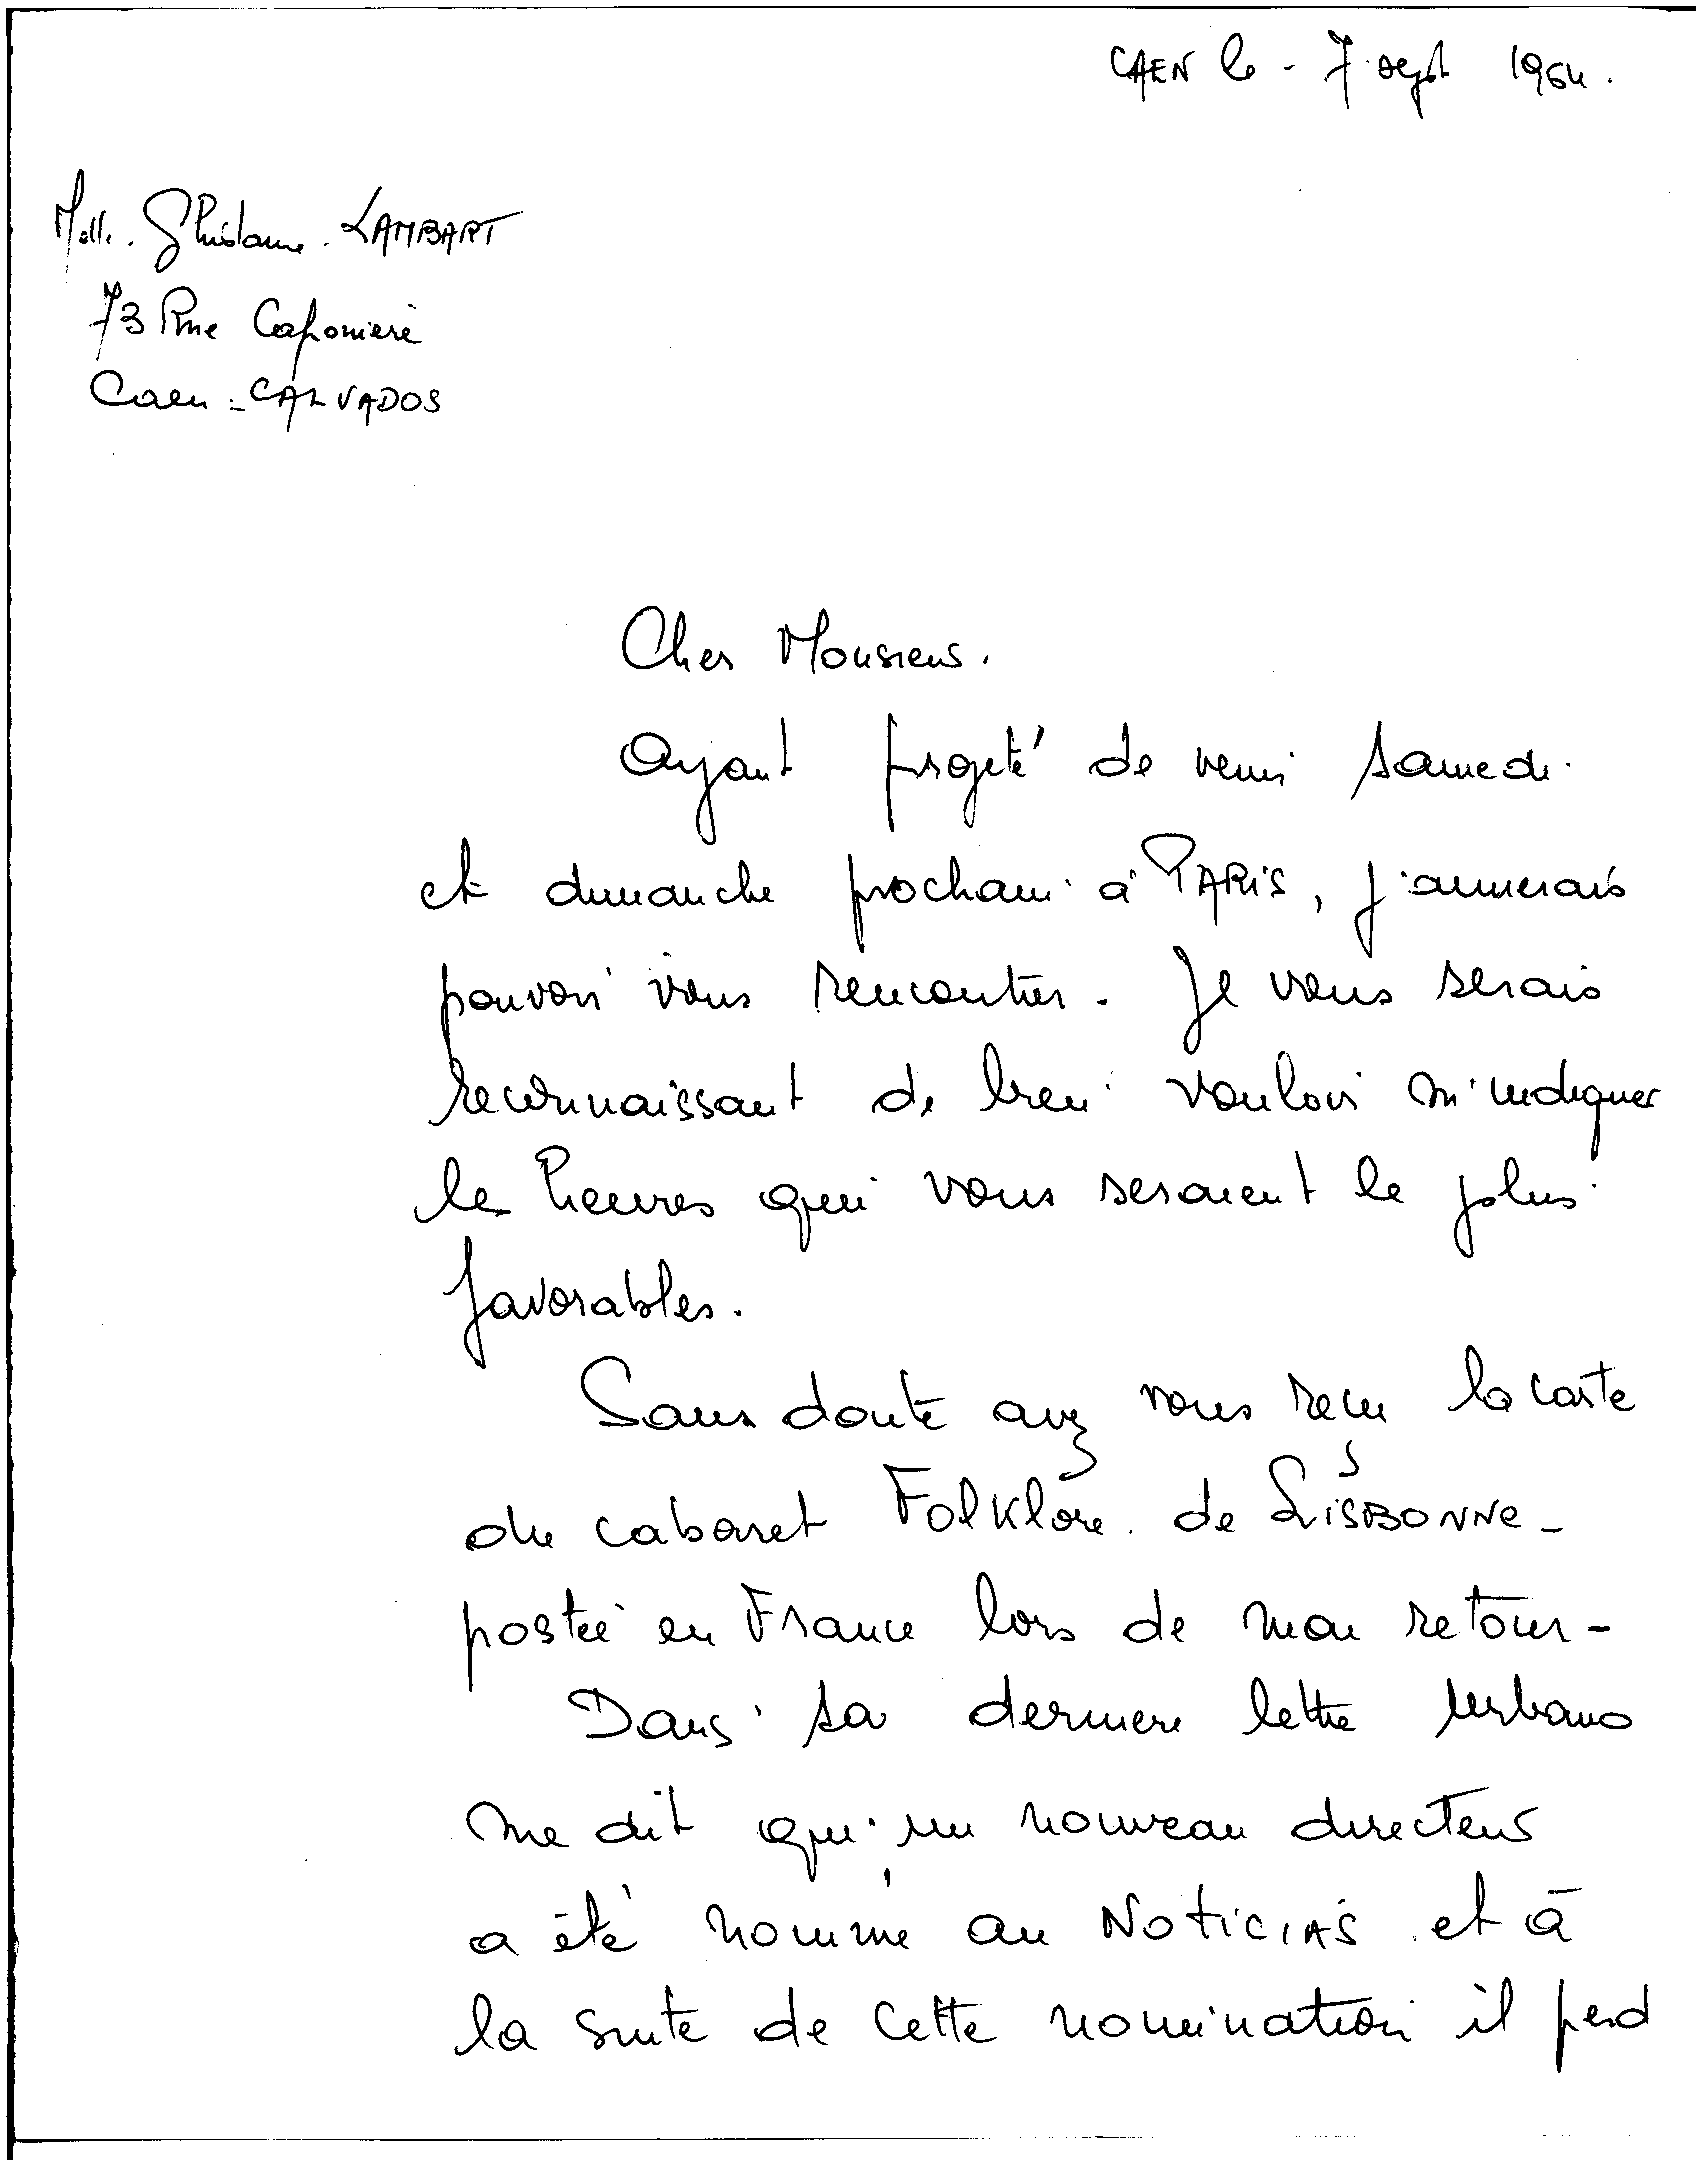 CAEN le - 7 sept 1964.
Melle. Ghislaine. LAMBART
73 Rue Caponière
Caen - CALVADOS
Cher Monsieur.
Ayant projeté de venir samedi
et dimanche prochain à PARIS, j'aimerais
pouvoir vous rencontrer. Je vous serais
reconnaissant de bien vouloir m'indiquer
les heures qui vous seraient le plus
favorables.
Sans doute avez vous recu la carte
du cabaret Folklore. de LISBONNE -
postée en France lors de mon retour -
Dans sa derniere lettre Urbano
me dit qu'un nouveau directeur
a été nommé au NoticiAs et à
la suite de cette nomination il perd